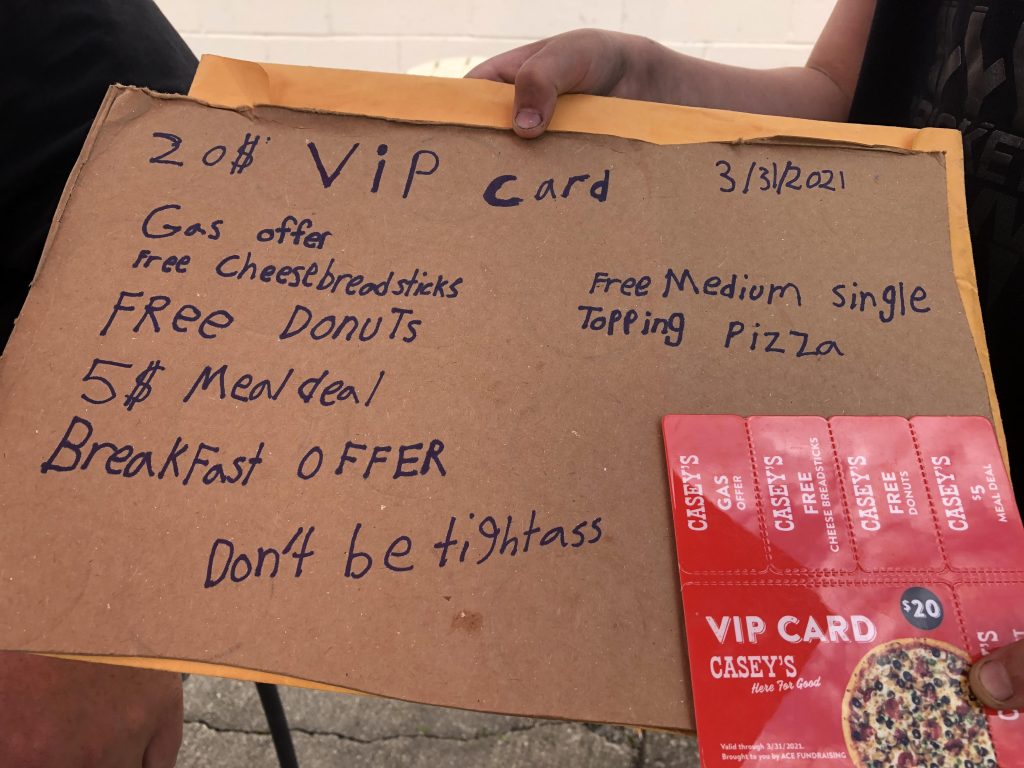 20$ ViP Card
3/31/2021
Gas offer
Free Cheesebreadsticks
FRee DonuTs
5$ Mealdeal
BreakFast OFFER
Free Medium single
Topping Pizza
Don't be tightass
CASEY'S
GAS
OFFER
CASEY'S
FREE
CHEESE BREADSTICKS
CASEY'S
FREE
DONUTS
CASEY'S
$5
MEAL DEAL
$20
VIP CARD
CASEY'S
Here For Good
Valid through 3/31/2021.
Brought to you by ACE FUNDRAISING